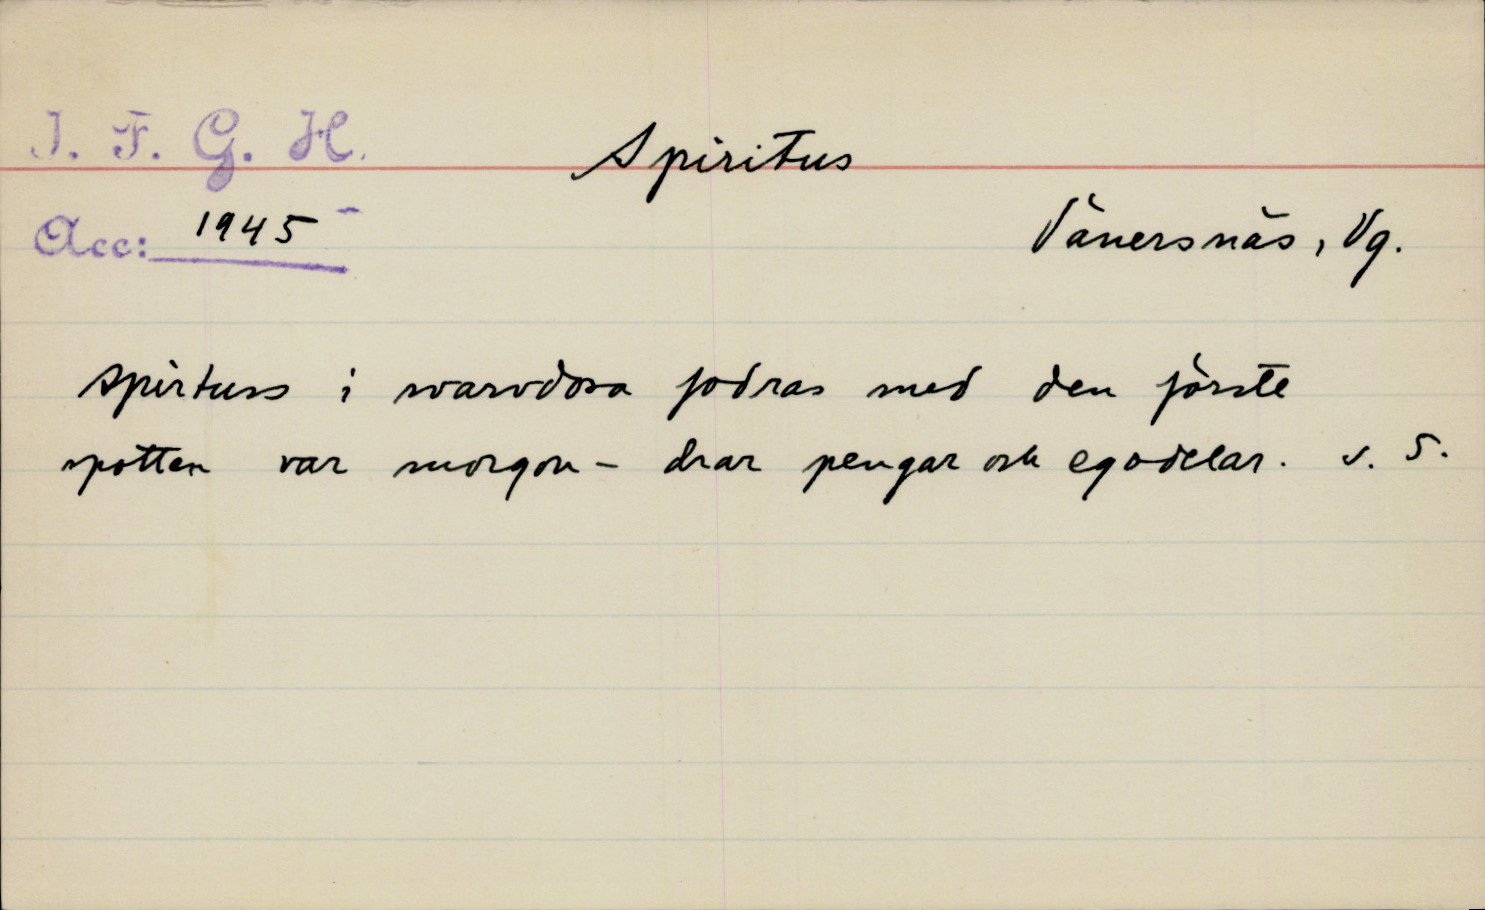 I. F. G. H.
Spiritus
Acc: 1945
Vänersnäs, Vg.
Spirtuss i svarvdosa fodras med den förste
spotten var morgon - drar pengar och egodelar. s. 5.